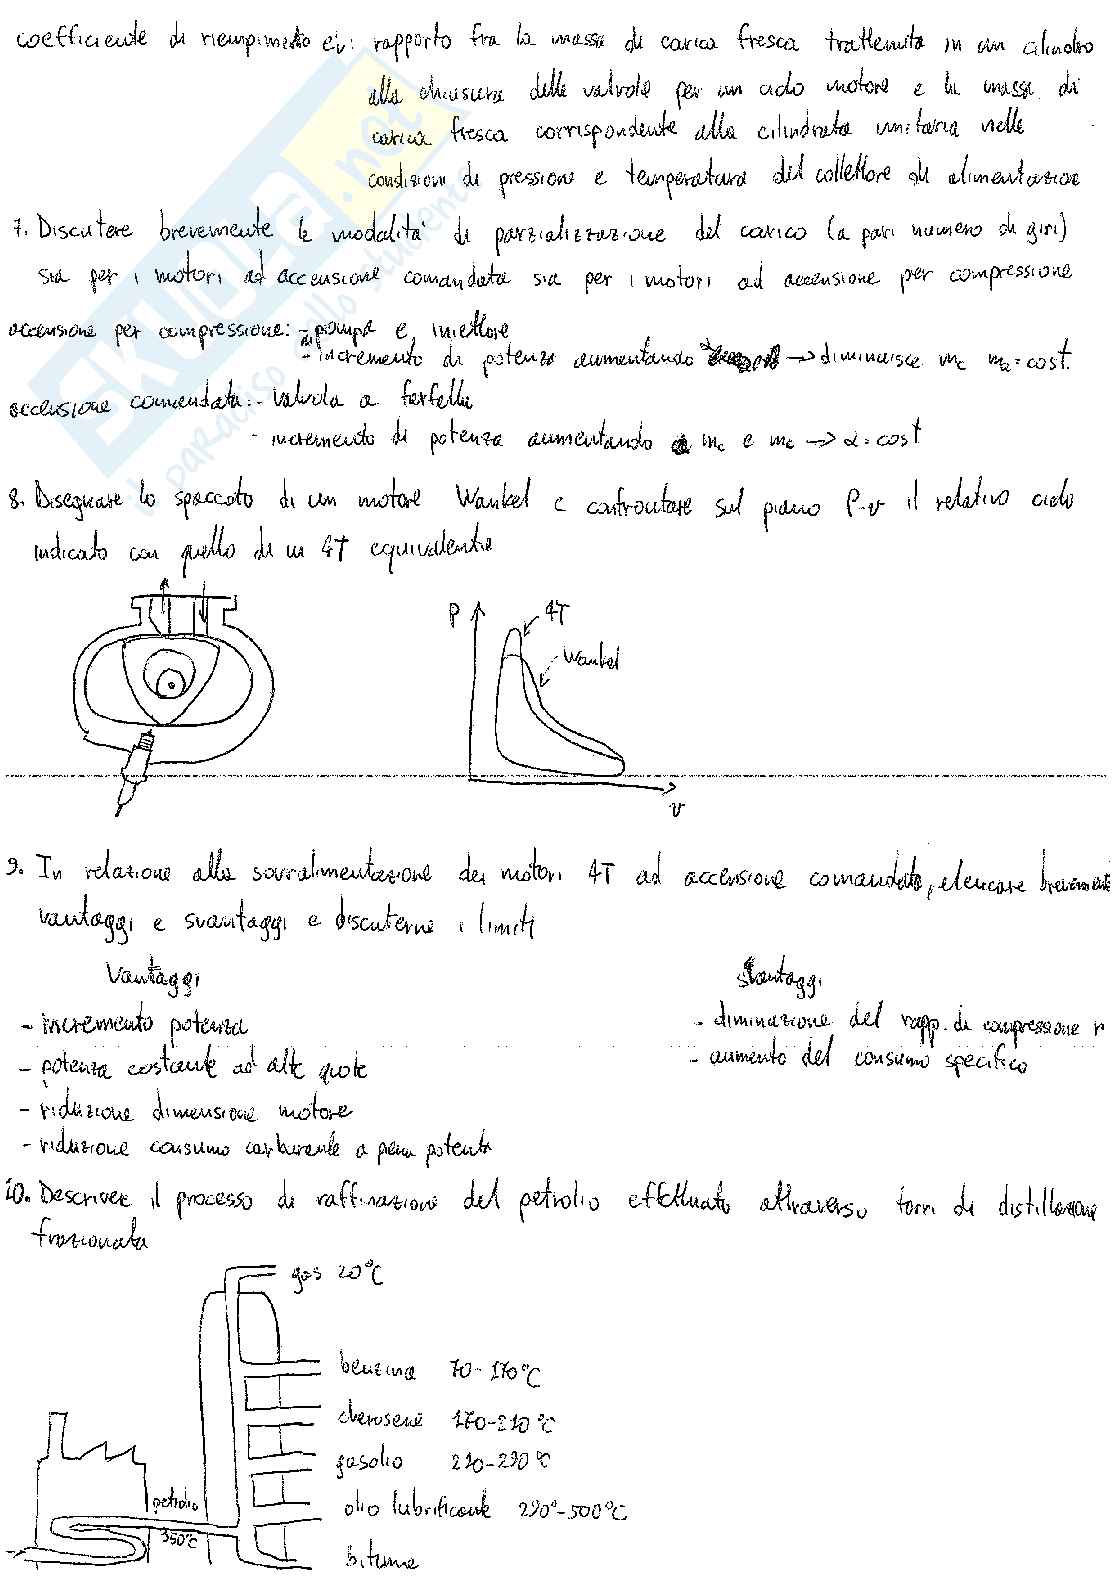 coefficiente di riempimento ev: rapporto fra la massa di carica fresca trattenuta in un cilindro
alla chiusura delle valvole per un ciclo motore e la massa di
carica fresca corrispondente alla cilindrata unitaria nelle
condizioni di pressione e temperatura del collettore di alimentazione
7. Discutere brevemente le modalità di parzializzazione del carico (a pari numero di giri)
sia per i motori ad accensione comandata sia per i motori ad accensione per compressione
accensione per compressione: - pompa e iniettore
- incremento di potenza aumentando → diminuisce mc ma = cost.
accensione comandata: - valvola a farfalla
- incremento di potenza aumentando mc e mc → α = cost
8. Disegnare lo spaccato di un motore Wankel e confrontare sul piano P-v il relativo ciclo
indicato con quello di un 4T equivalente
P
4T
Wankel
v
9. In relazione alla sovralimentazione dei motori 4T ad accensione comandata, elencare brevemente
vantaggi e svantaggi e discuterne i limiti
Vantaggi
- incremento potenza
- potenza costante ad alte quote
- riduzione dimensione motore
- riduzione consumo carburante a pari potenza
Svantaggi
- diminuzione del rapp. di compressione r
- aumento del consumo specifico
10. Descrivere il processo di raffinazione del petrolio effettuato attraverso torri di distillazione
frazionata
gas 20°C
benzina 70-170°C
cherosene 170-210°C
gasolio 210-290°C
olio lubrificante 290°-500°C
bitume
petrolio
350°C
SKUOLA.net
il paradiso dello studente